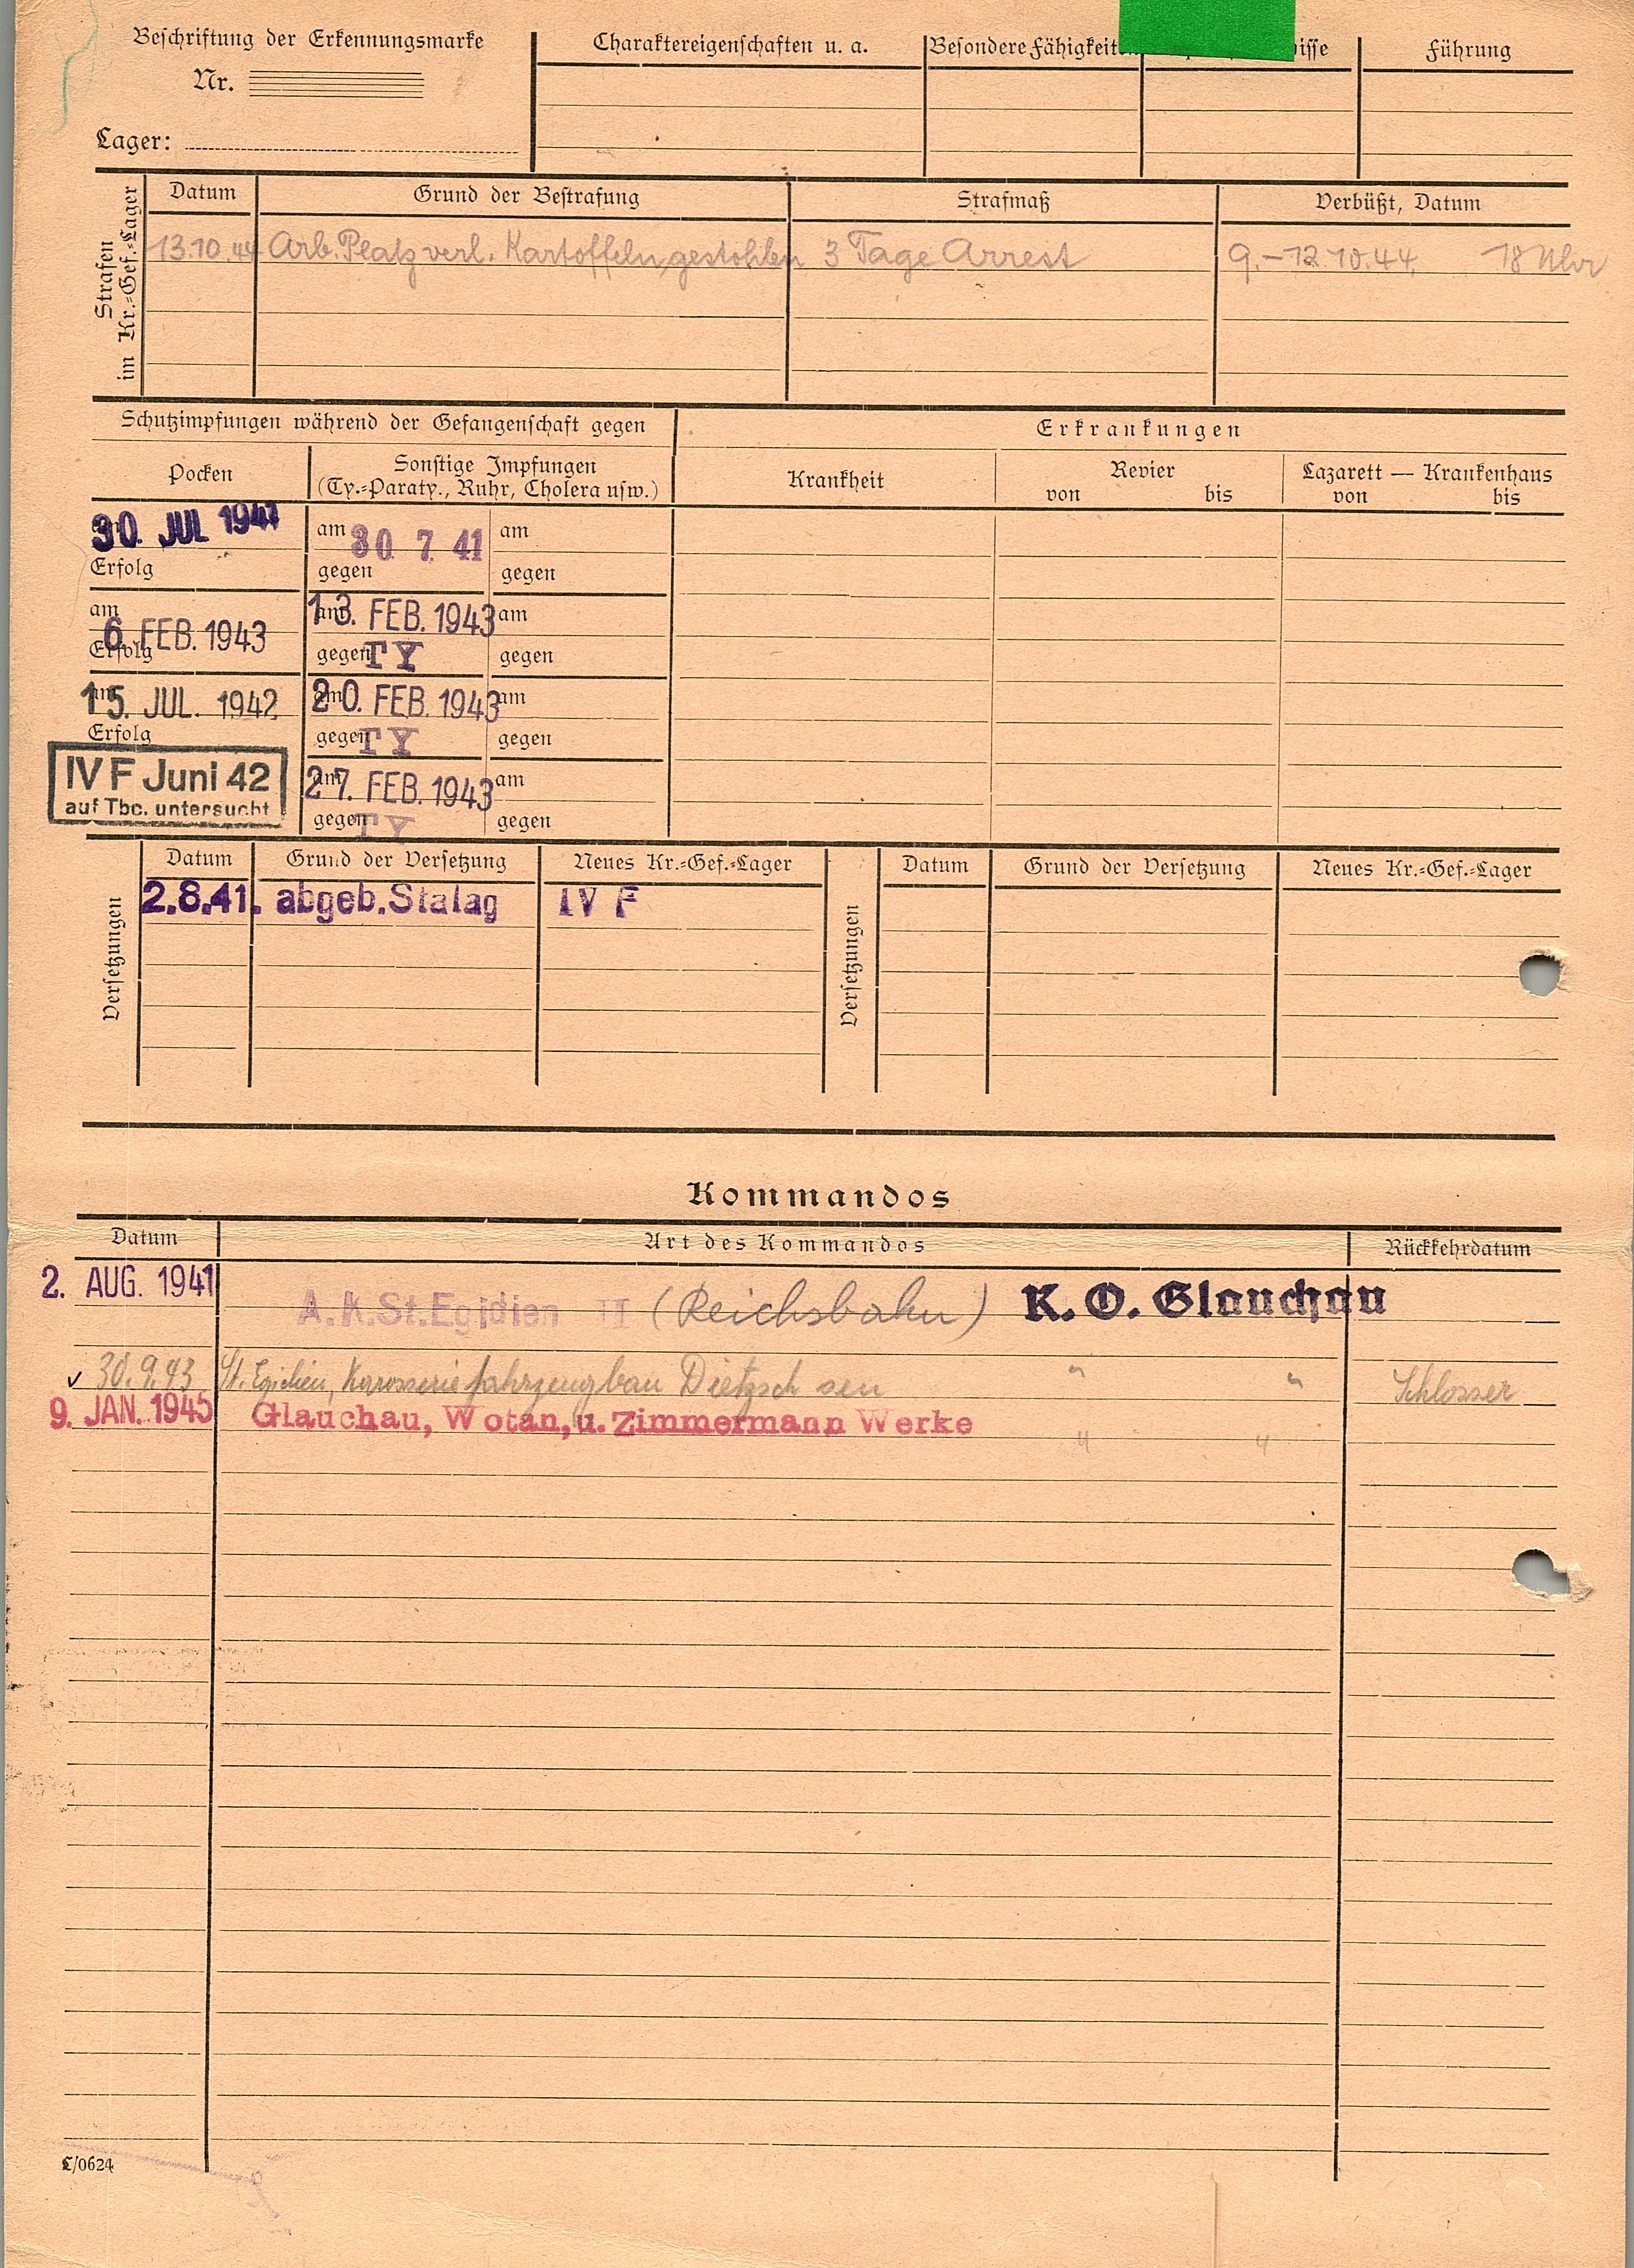 Beschriftung der Erkennungsmarke
Nr.
Lager:
Charaktereigenschaften u. a.
Besondere Fähigkeit
isse
Führung
Strafen
im Kr.=Gef.=Lager
Datum Grund der Bestrafung Strafmaß Verbüßt, Datum
13.10.44 Arb. Platz verl. Kartoffeln gestohlen 3 Tage Arrest 9.–12.10.44. 18 Uhr
Schutzimpfungen während der Gefangenschaft gegen
Erkrankungen
Pocken
Sonstige Impfungen
(Ty.=Paraty., Ruhr, Cholera usw.)
Krankheit
Revier
von bis
Lazarett — Krankenhaus
von bis
am 30. JUL 1941 am 30 7 41 am
Erfolg gegen gegen
am 6. FEB. 1943 am 13. FEB. 1943 am
Erfolg gegen TY gegen
am 15. JUL. 1942 am 20. FEB. 1943 am
Erfolg gegen TY gegen
IV F Juni 42
auf Tbc. untersucht
am 27. FEB. 1943 am
gegen TY gegen
Versetzungen
Datum Grund der Versetzung Neues Kr.=Gef.=Lager
2.8.41. abgeb. Stalag IV F
Versetzungen
Datum Grund der Versetzung Neues Kr.=Gef.=Lager
Kommandos
Datum Art des Kommandos Rückkehrdatum
2. AUG. 1941 A.K.St.Egidien II (Reichsbahn) K. O. Glauchau
v 30.9.43 St. Egidien, Karosserie fahrzeugbau Dietzsch sen " " Schlosser
9. JAN. 1945 Glauchau, Wotan, u. Zimmermann Werke " "
L/0624